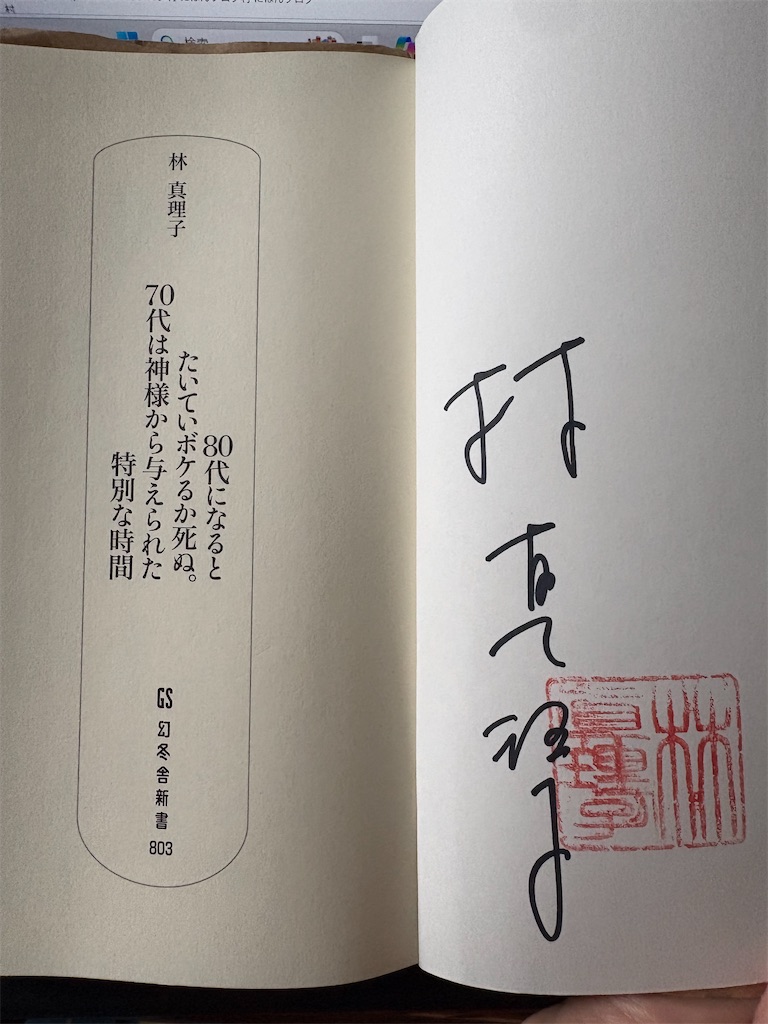 林 真理子
80代になると
たいていボケるか死ぬ。
70代は神様から与えられた
特別な時間
GS
幻冬舎新書
803
林 真理子
林
真理子
検索
村